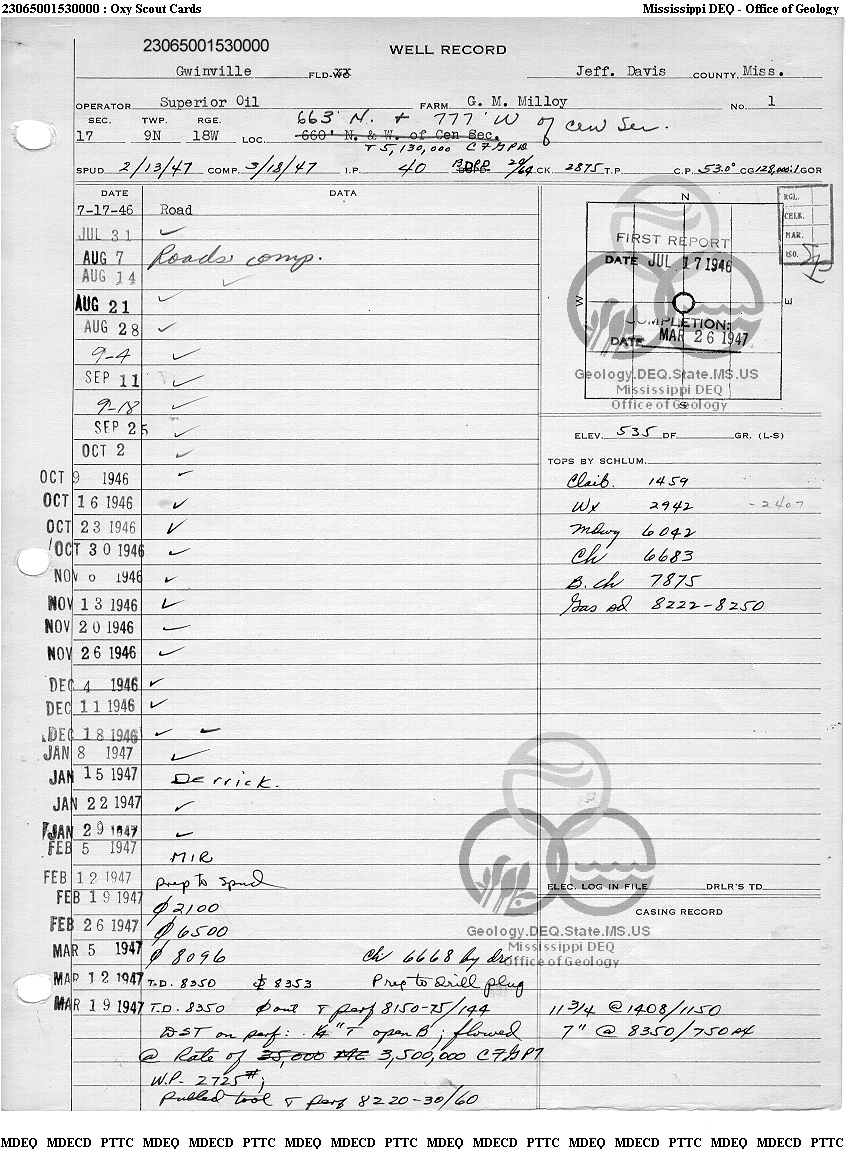 23065001530000 : Oxy Scout Cards Mississippi DEQ - Office of Geology
23065001530000
WELL RECORD
Gwinville FLD-WC Jeff. Davis COUNTY, Miss.
OPERATOR Superior Oil FARM G. M. Milloy No. 1
SEC. TWP. RGE. 663' N. + 777' W of Cen Sec.
17 9N 18W LOC. 660' N. & W. of Cen Sec.
5,130,000 CFGPD
SPUD 2/13/47 COMP. 3/18/47 I.P. 40 BDPD 20/64 CK. 2875 T.P. C.P. 53.0° CG 128,000:1 GOR
DATE DATA
7-17-46 Road
JUL 31 ✓
AUG 7 Roads comp.
AUG 14 ✓
AUG 21 ✓
AUG 28 ✓
9-4 ✓
SEP 11 ✓
9-18 ✓
SEP 25 ✓
OCT 2 ✓
OCT 9 1946 ✓
OCT 16 1946 ✓
OCT 23 1946 ✓
OCT 30 1946 ✓
NOV 6 1946 ✓
NOV 13 1946 ✓
NOV 20 1946 ✓
NOV 26 1946 ✓
DEC 4 1946 ✓
DEC 11 1946 ✓
DEC 18 1946 ✓ ✓
JAN 8 1947 ✓
JAN 15 1947 Derrick.
JAN 22 1947 ✓
JAN 29 1947 ✓
FEB 5 1947 MIR
FEB 12 1947 prep to spud
FEB 19 1947 ϕ 2100
FEB 26 1947 ϕ 6500
MAR 5 1947 ϕ 8096 Ch 6668 by
MAR 12 1947 T.D. 8350 8353 Prep to drill plug
MAR 19 1947 T.D. 8350 ϕ out & perf 8150-75/144
DST on perf: ¼" T open B; flowed
@ Rate of 35,000 3,500,000 CFGPD
W.P. 2725#;
Pulled tool & perf 8220-30/60
N
W
E
S
RGL.
CELK.
MAR.
ISO.
FIRST REPORT
DATE JUL 17 1946
COMPLETION:
DATE MAR 26 1947
Geology.DEQ.State.MS.US
Mississippi DEQ
Office of Geology
ELEV. 535 DF GR. (L-S)
TOPS BY SCHLUM.
Claib. 1459
Wx 2942 -2407
Mdwy 6042
Ch 6683
B. Ch 7875
Gas sd 8222-8250
ELEC. LOG IN FILE DRLR'S TD
CASING RECORD
Geology.DEQ.State.MS.US
Mississippi DEQ
Office of Geology
11 3/4 @ 1408/1150
7" @ 8350/750
MDEQ MDECD PTTC MDEQ MDECD PTTC MDEQ MDECD PTTC MDEQ MDECD PTTC MDEQ MDECD PTTC MDEQ MDECD PTTC